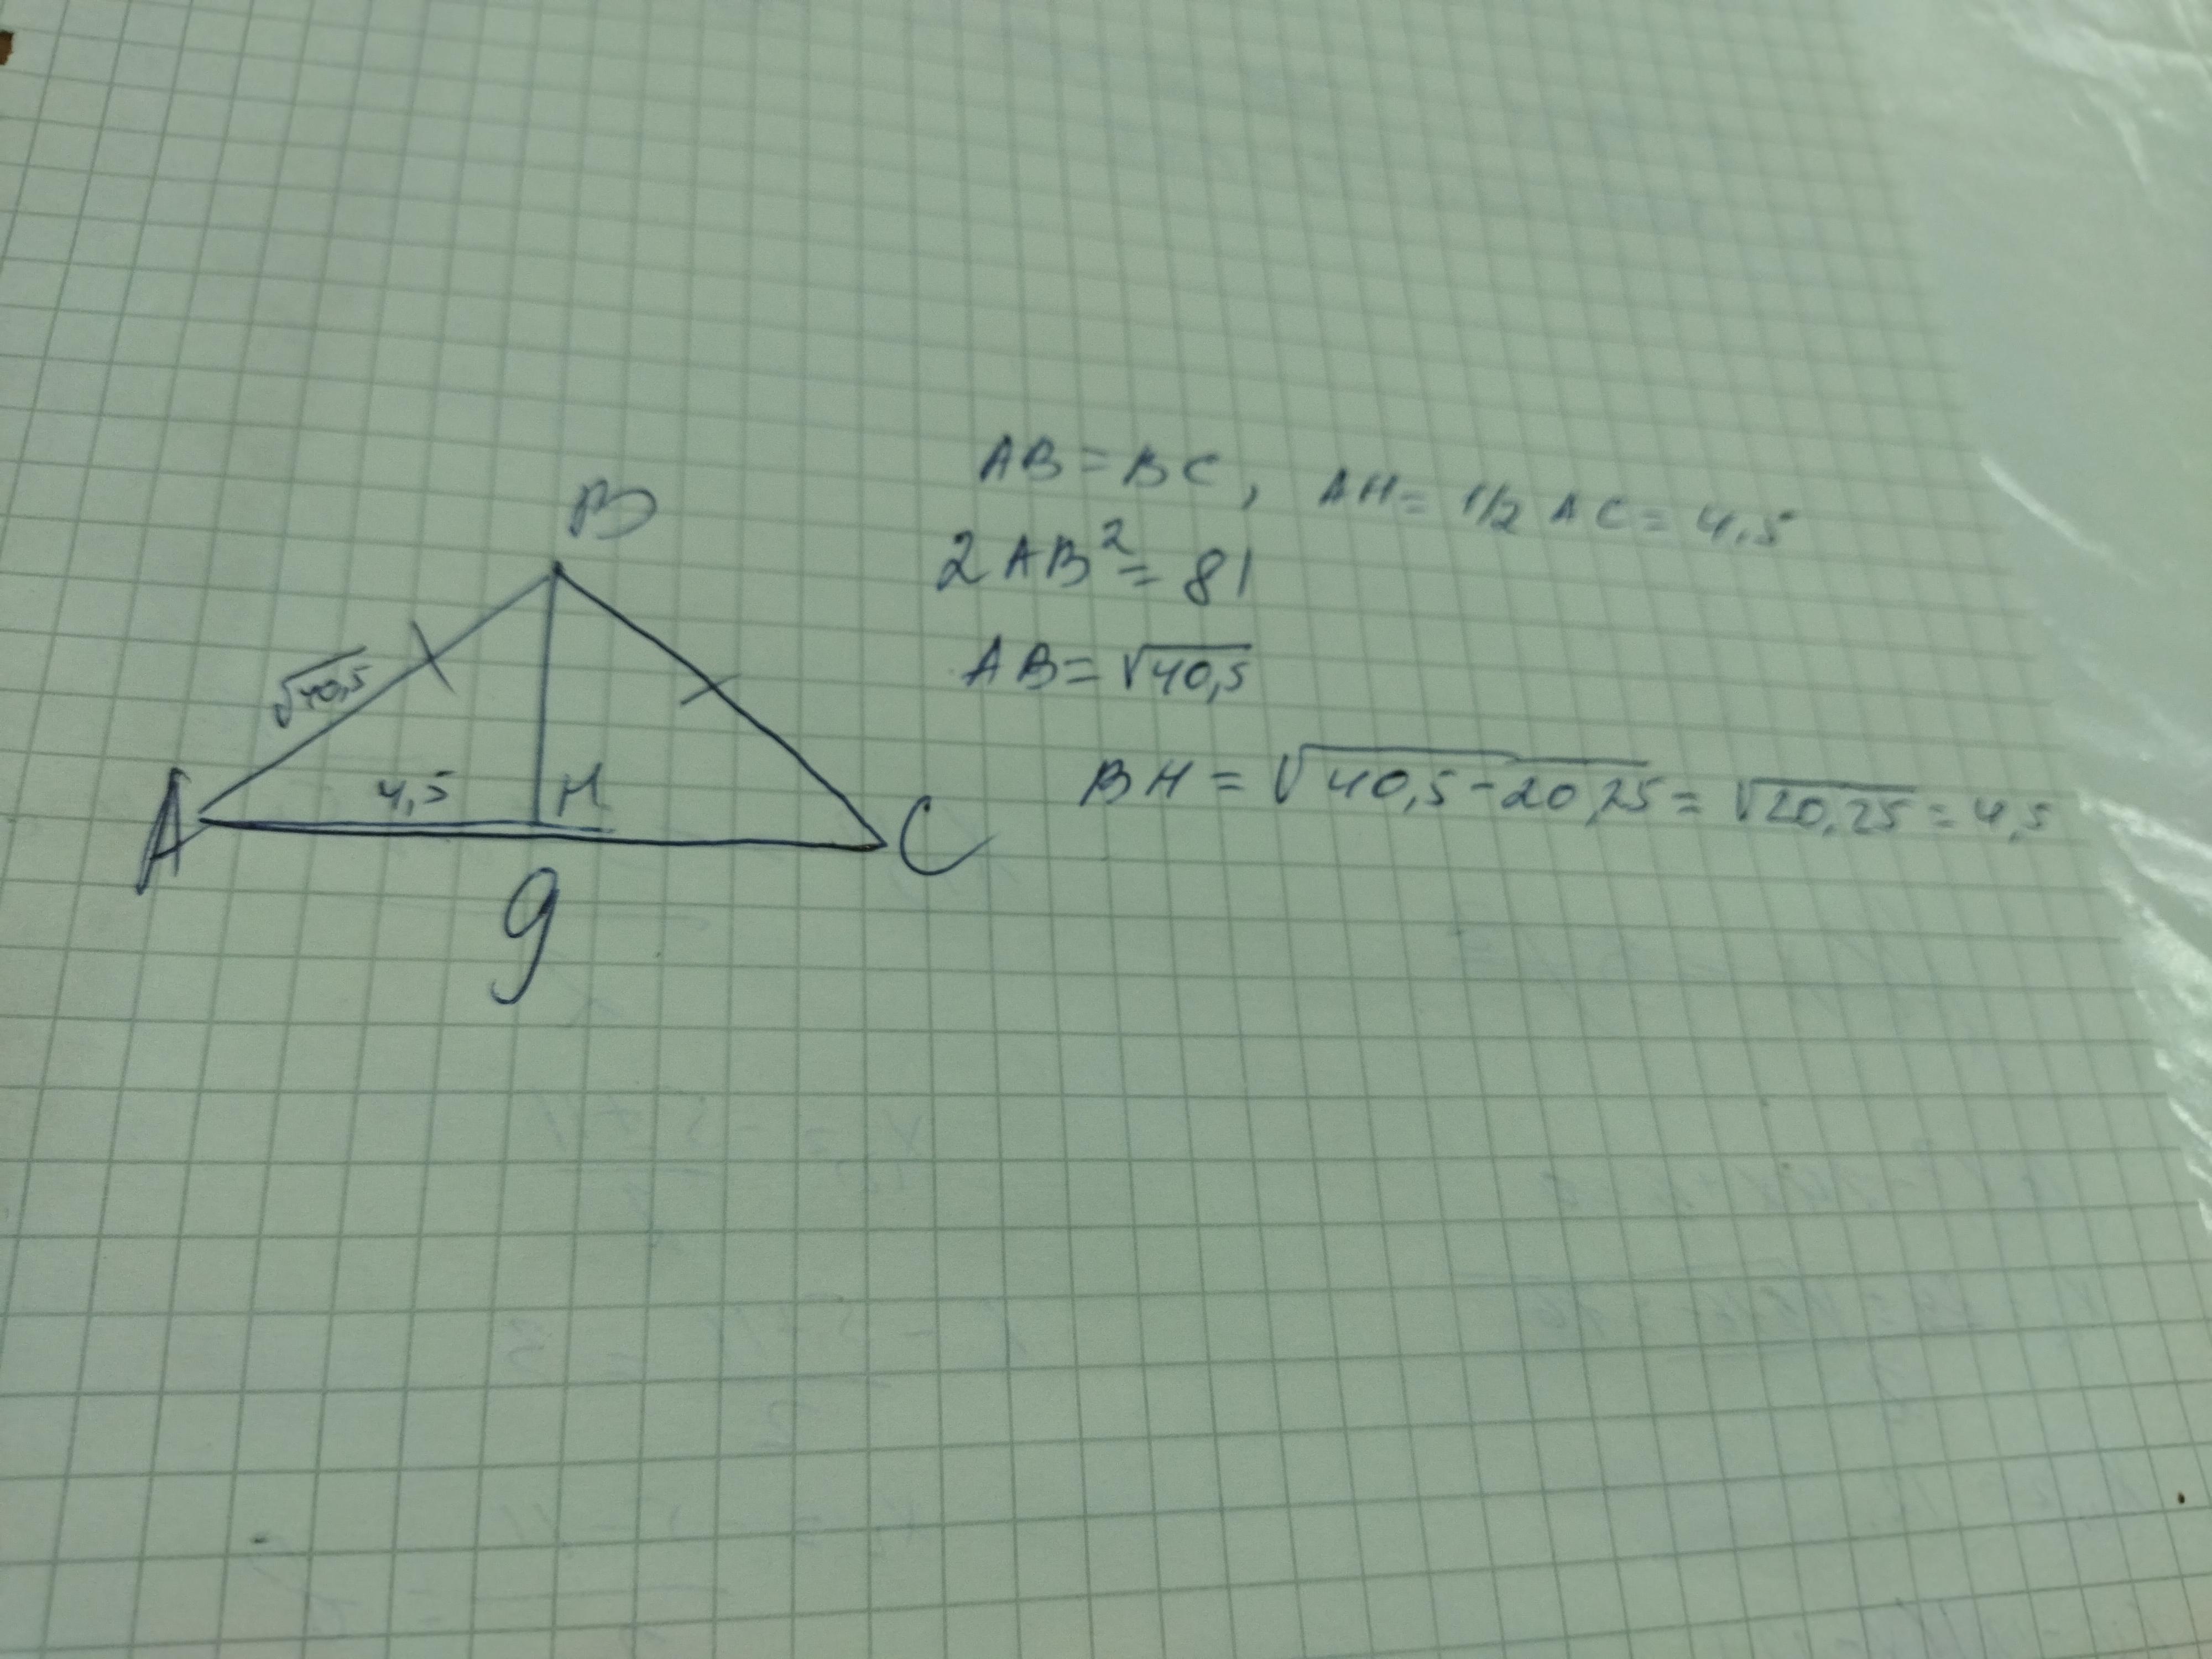 AB = BC, AH = 1/2 AC = 4,5
2AB² = 81
AB = √40,5
BH = √40,5-20,25 = √20,25 = 4,5
B
√40,5
A
4,5
H
C
9